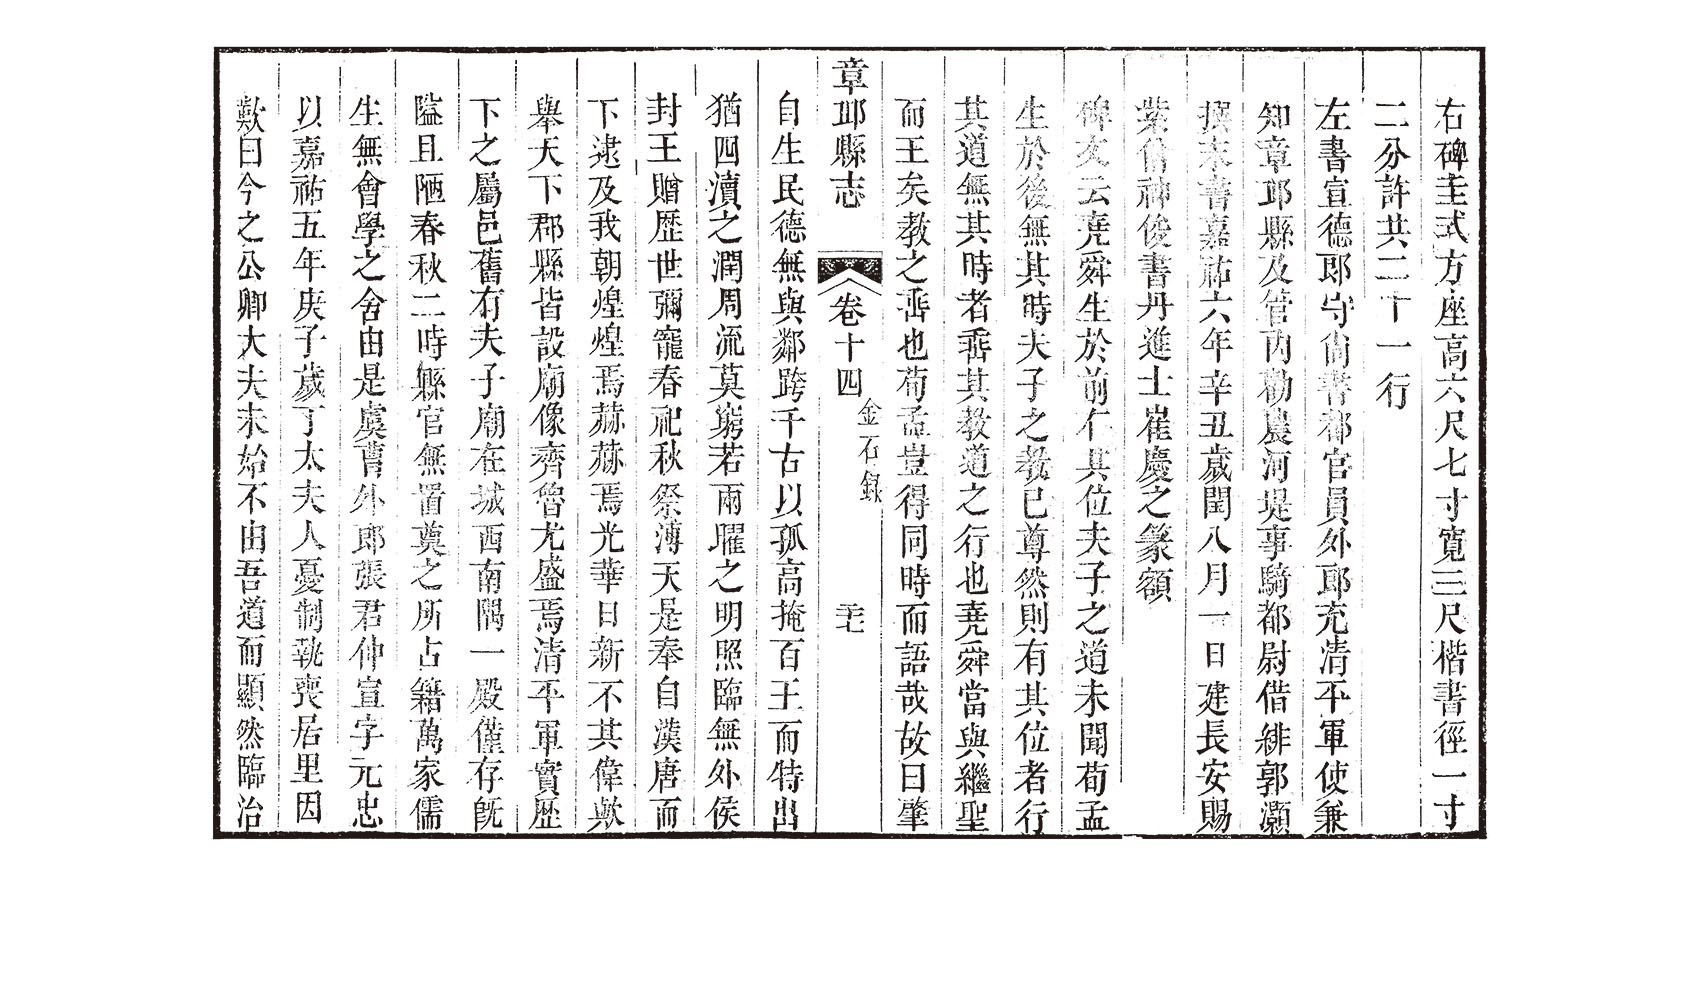 右碑圭式方座高六尺七寸寬三尺楷書徑一寸
二分許共二十一行
左書宣德郎守尚書都官員外郎充清平軍使兼
知章邱縣及管內勸農河堤事騎都尉借緋郭灝
撰末書嘉祐六年辛丑歲閏八月一日建長安賜
紫僧神俊書丹進士崔慶之篆額
碑文云堯舜生於前仁其位夫子之道未聞荀孟
生於後無其時夫子之教已尊然則有其位者行
其道無其時者垂其教道之行也堯舜當與繼聖
而王矣教之垂也荀孟豈得同時而語哉故曰肇
章邱縣志
卷十四
金石錄
二十七
自生民德無與鄰跨千古以孤高掩百王而特出
猶四瀆之潤周流莫窮若兩曜之明照臨無外侯
封王贈歷世彌寵春祀秋祭溥天是奉自漢唐而
下逮及我朝煌煌焉赫赫焉光華日新不其偉歟
舉天下郡縣皆設廟像齊魯尤盛焉清平軍實歷
下之屬邑舊有夫子廟在城西南隅一殿僅存旣
隘且陋春秋二時縣官無置奠之所占籍萬家儒
生無會學之舍由是虞曹外郎張君仲宣字元忠
以嘉祐五年庚子歲丁太夫人憂制執喪居里因
歎曰今之公卿大夫未始不由吾道而顯然臨治